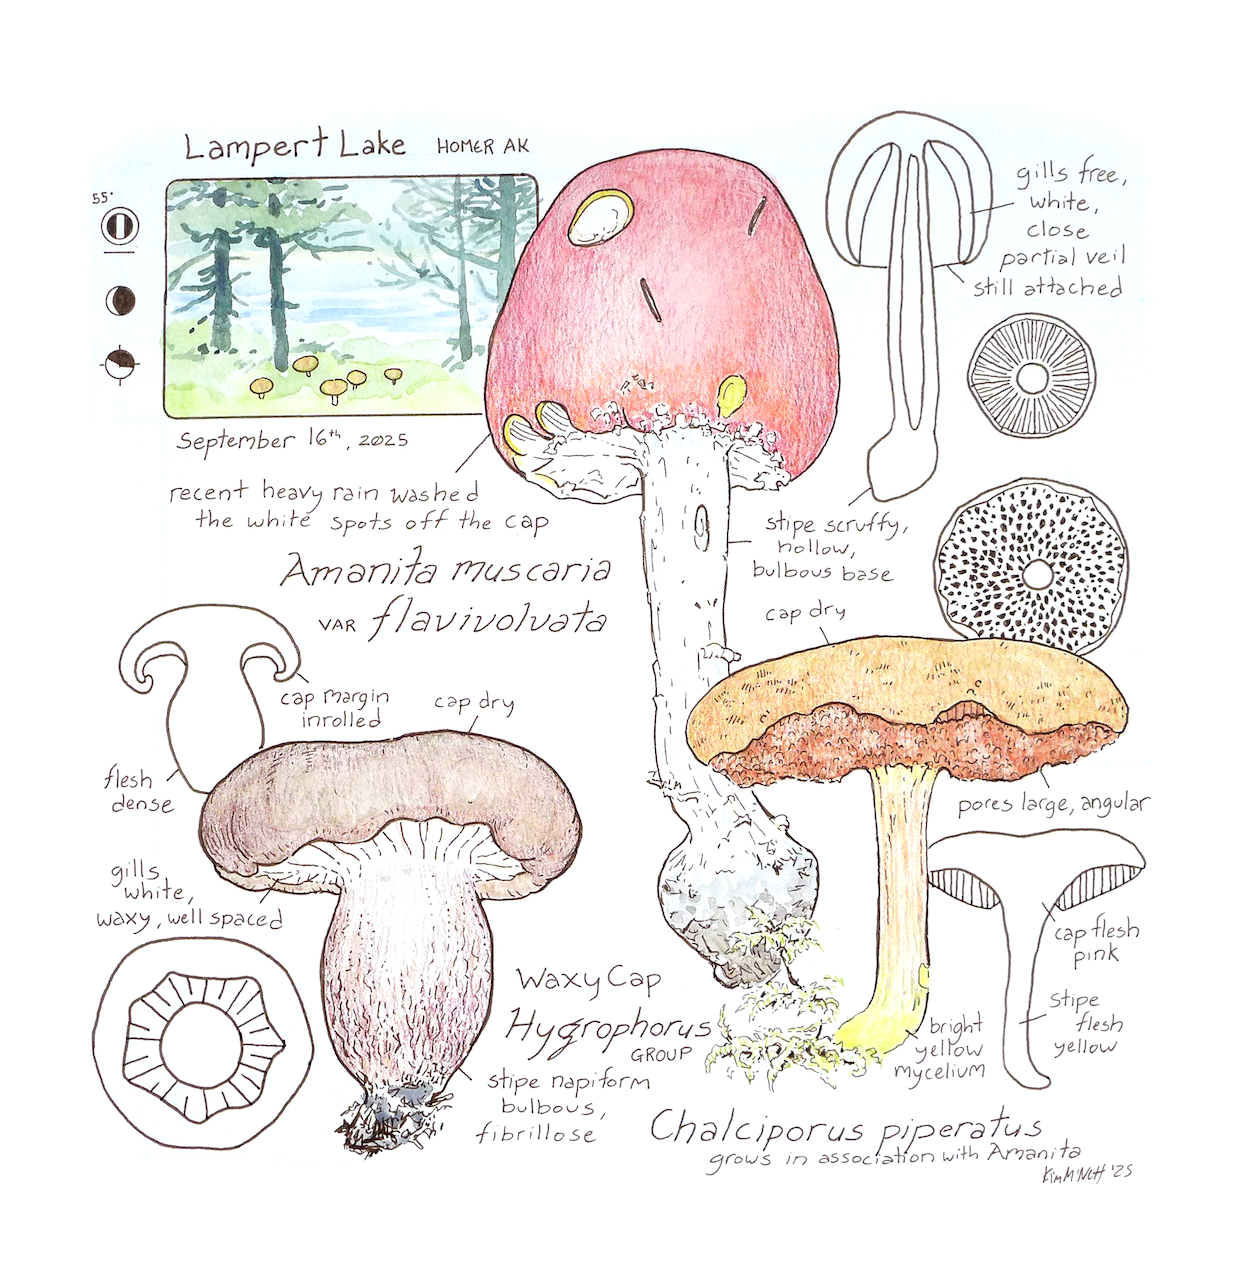 Lampert Lake HOMER AK
55°
September 16th, 2025
recent heavy rain washed
the white spots off the cap
Amanita muscaria
VAR flavivolvata
gills free,
white,
close
partial veil
still attached
stipe scruffy,
hollow,
bulbous base
cap dry
pores large, angular
cap flesh
pink
stipe
flesh
yellow
bright
yellow
mycelium
Chalciporus piperatus
grows in association with Amanita
cap margin
inrolled
cap dry
flesh
dense
gills
white,
waxy, well spaced
Waxy Cap
Hygrophorus
GROUP
stipe napiform
bulbous,
fibrillose
'25